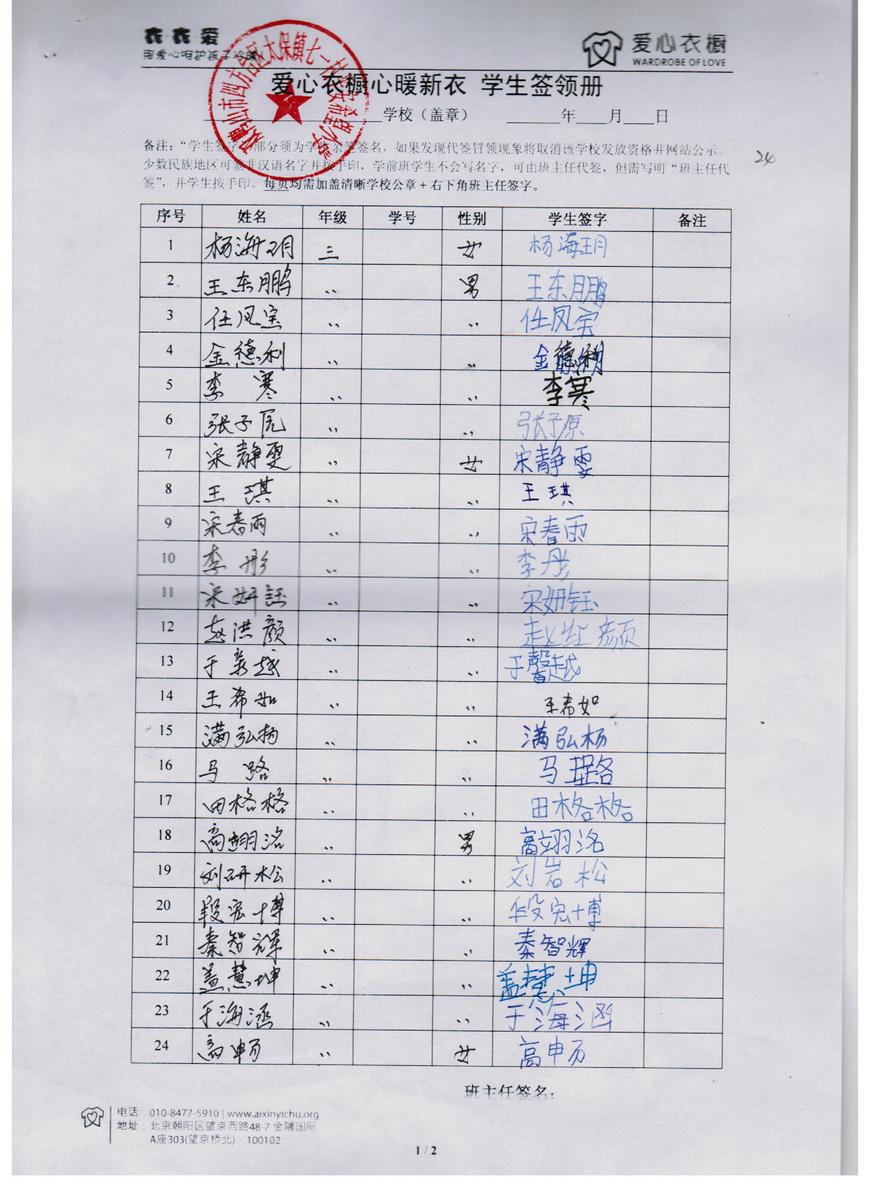 衣衣爱
用爱心呵护孩子冷暖
爱心衣橱
WARDROBE OF LOVE
爱心衣橱心暖新衣 学生签领册
学校（盖章） 年 月 日
备注：“学生签字”部分须为学生亲笔签名，如果发现代签冒领现象将取消该学校发放资格并网站公示。
少数民族地区可签非汉语名字并按手印，学前班学生不会写名字，可由班主任代签，但需写明“班主任代
签”，并学生按手印。每页均需加盖清晰学校公章+右下角班主任签字。
24
序号 姓名 年级 学号 性别 学生签字 备注
1 杨海玥 三 女 杨海玥
2 王东鹏 〃 男 王东鹏
3 任凤宝 〃 〃 任凤宝
4 金德利 〃 〃 金德利
5 李寒 〃 〃 李寒
6 张子原 〃 〃 张子原
7 宋静雯 〃 女 宋静雯
8 王琪 〃 〃 王琪
9 宋春雨 〃 〃 宋春雨
10 李彤 〃 〃 李彤
11 宋妍钰 〃 〃 宋妍钰
12 赵洪颜 〃 〃 赵 颜
13 于馨越 〃 〃 于馨越
14 王希如 〃 〃 王希如
15 满弘杨 〃 〃 满弘杨
16 马路 〃 〃 马璐
17 田格格 〃 〃 田格格
18 高翊洺 〃 男 高翊洺
19 刘研松 〃 〃 刘岩松
20 段宏博 〃 〃 段宏博
21 秦智辉 〃 〃 秦智辉
22 盖慧坤 〃 〃 盖慧坤
23 于海涵 〃 〃 于海涵
24 高畅 〃 女 高畅
班主任签名：
电话 010-8477-5910 | www.aixinyichu.org
地址： 北京朝阳区望京西路48-7 金隅国际
A座303(望京桥北)· 100102
1 / 2